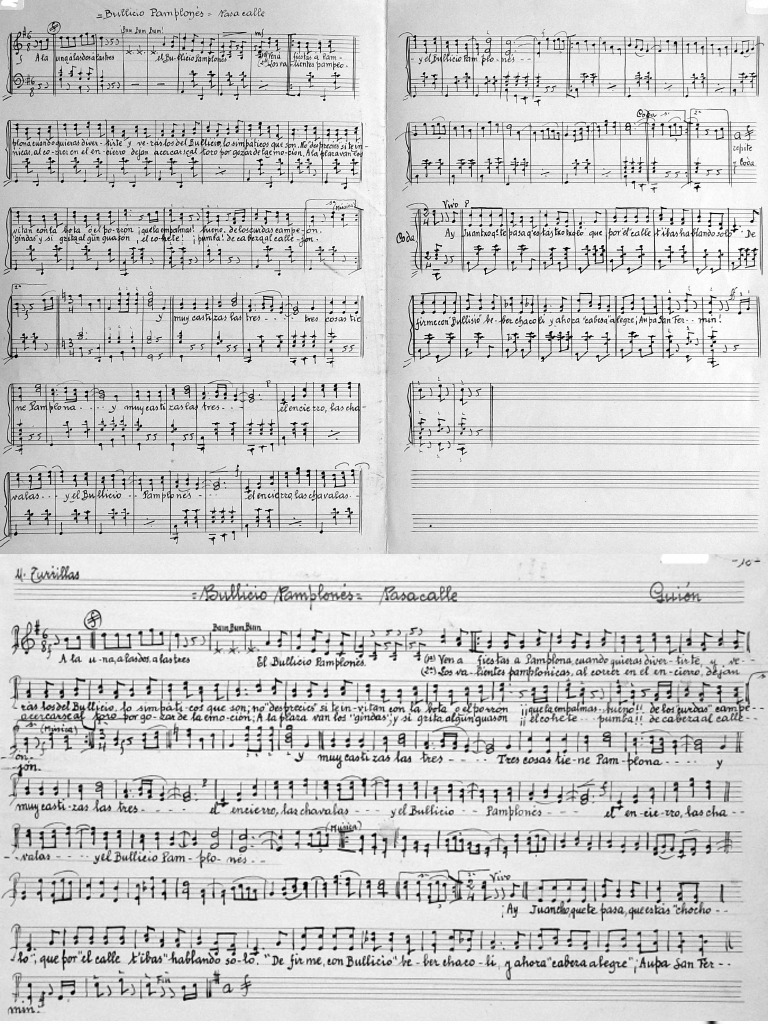 =Bullicio Pamplonés= Pasacalle
¡Bum Bum Bum!
A la una, a las dos, a las tres El Bullicio Pamplonés
(1ª) Ven a fiestas a Pam-
(2ª) Los va lientes pamplo-
plona cuando quieras diver-tirte y verás los del Bullicio, lo simpáticos que son, No desprecies si te in-
nicas, al correr en el en cierro dejan acercarse al toro por gozar de la emoción, A la plaza van los
vitan con la bota o el porrón ¡que la empalmas! bueno, de los curdas campe-ón.
"gindas" y si grita algún guasón ¡el cohete! ¡pumba! de cabeza al calle-jón.
(Música)
y muy castizas las tres - - - tres cosas tie
ne Pamplona - - - y muy castizas las tres - - - el encierro, las cha-
valas - - - y el Bullicio - - Pamplonés - - - el encierro, las chavalas - - -
- y el Bullicio Pamplo nés - -
Coda 1ª 2ª
a
repite
y Coda
Vivo P
Coda
Ay Juantxo q. te pasa q. estás txotxolo que por el calle t'ibas hablando solo" De
firme con "Bullisio" be-ber chacolí y ahora "cabesa" alegre; Aupa San Fer-- min!
M. Turrillas
-10-
=Bullicio Pamplonés= Pasacalle Guión
Bum Bum Bum
A la u-na, a las dos, a las tres El Bullicio Pamplonés. (1ª) Ven a fiestas a Pamplona, cuando quieras diver-tirte, y ve-
(2ª) Los va-lientes pamplonicas, al correr en el en-cierro, dejan
rás los del Bullicio, lo simpáti-cos que son; no "desprecies" si te in-vitan con la bota o el porrón ¡¡que la empalmas.. bueno!! de los curdas" campe-
acercarse al toro por go-zar de la emo-ción; A la plaza van los "gindas" y si grita algún guasón ¡¡el cohe te.. pumba!! de cabeza al calle-
(Música)
ón. y muy castizas las tres - - - - Tres cosas tie-ne Pam-plona - - - - y
jón.
muy casti-zas las tres - - - - el encierro, las chavalas - - - - y el Bullicio - - - Pamplonés - - - - el en-cie-rro, las cha-
(Música)
- valas - - - y el Bullicio Pam-plo-nés - -
Vivo
¡Ay Juancho, que te pasa, que estás "chocho--
lo", que por "el calle t'ibas" hablando so-lo. "De firme, con Bullicio" be-ber chaco-lí, y ahora "cabeza alegre"; Aupa San Fer--
Fin
min. a